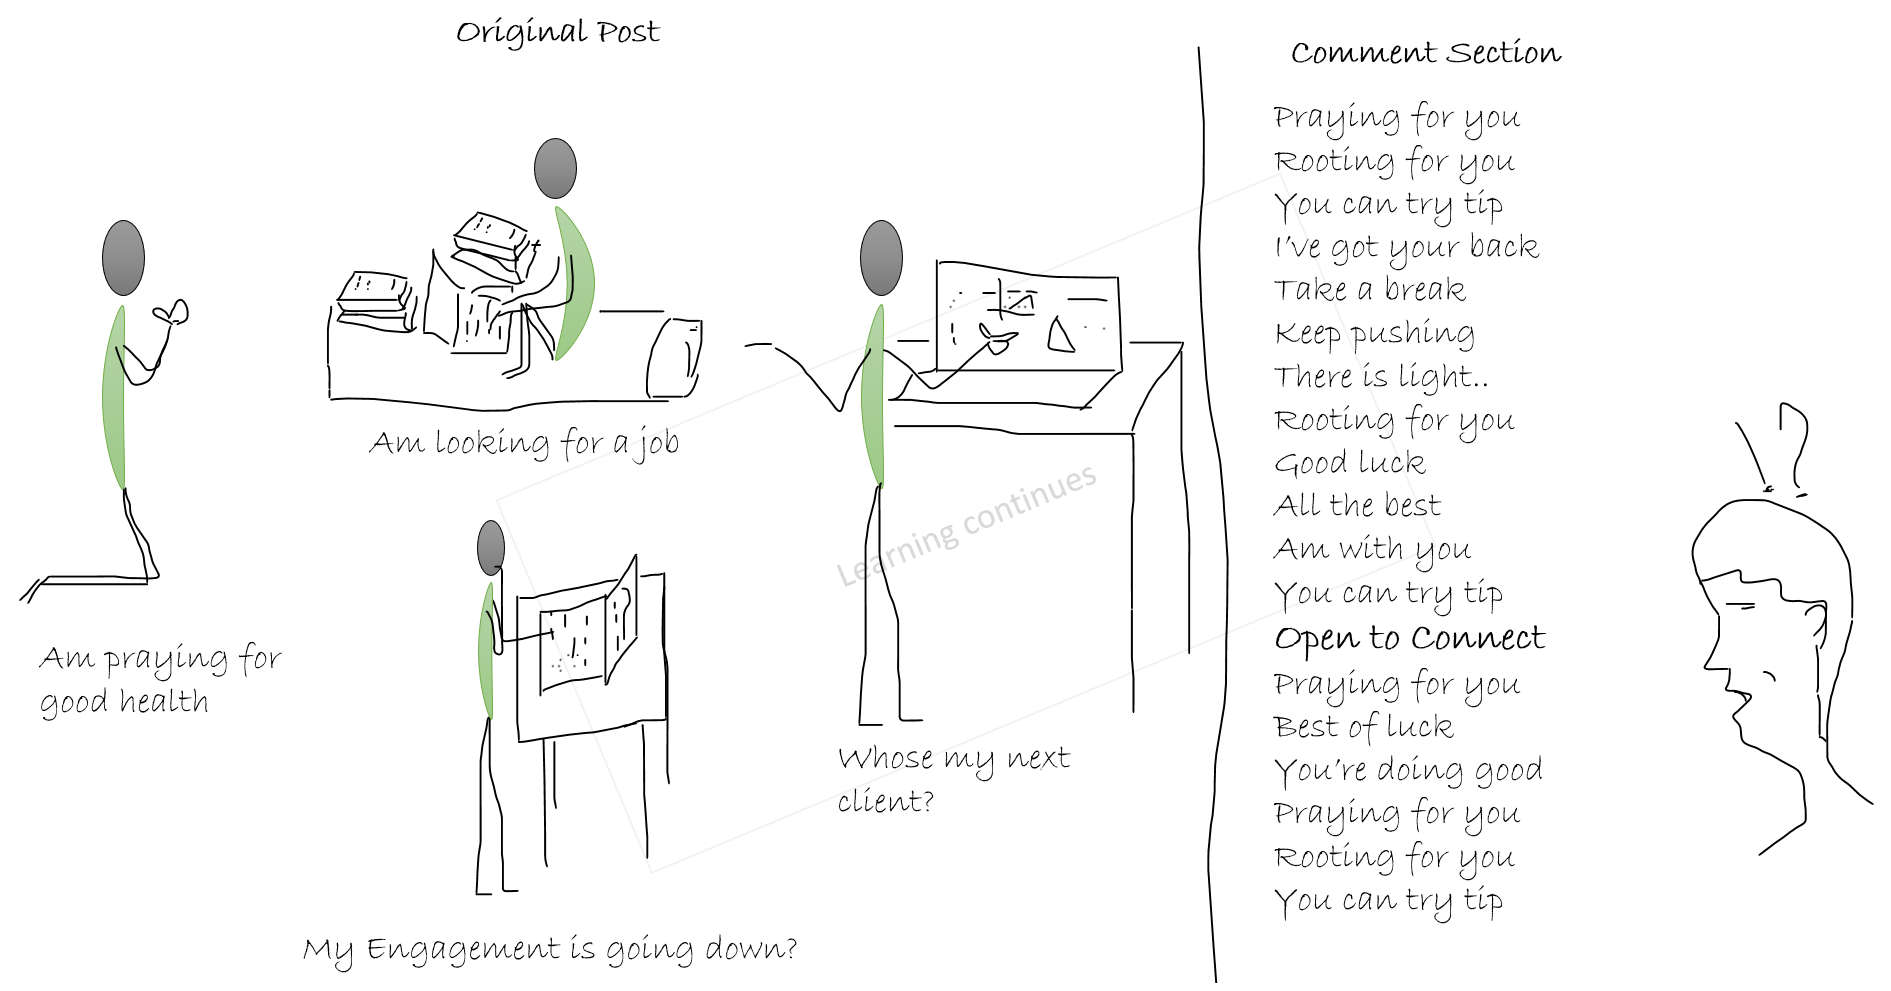 Original Post
Am looking for a job
Am praying for
good health
Whose my next
client?
My Engagement is going down?
Learning continues
Comment Section
Praying for you
Rooting for you
You can try tip
I've got your back
Take a break
Keep pushing
There is light..
Rooting for you
Good luck
All the best
Am with you
You can try tip
Open to Connect
Praying for you
Best of luck
You're doing good
Praying for you
Rooting for you
You can try tip